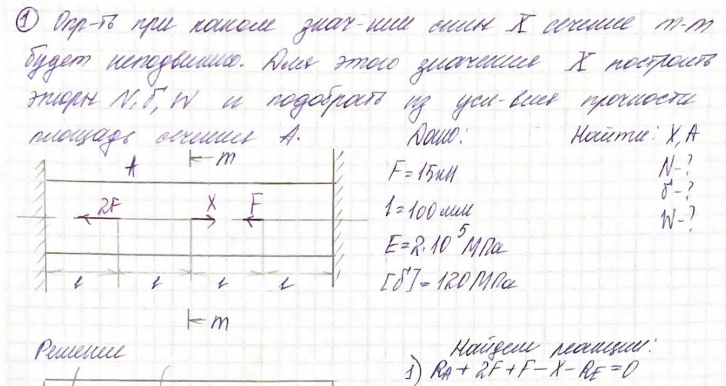 ① Опр-ть при каком знач-нии силы X сечение m-m
будет неподвижно. Для этого значения X построить
эпюры N, б, W и подобрать из усл-вия прочности
площадь сечения A.
Дано: Найти: X, A
F=15кН N-?
l=100мм б-?
E=2·10⁵МПа W-?
[б]=120МПа
A
m
2F X F
l l l l
m
Решение
Найдем реакции:
1) RA + 2F + F - X - RE = 0